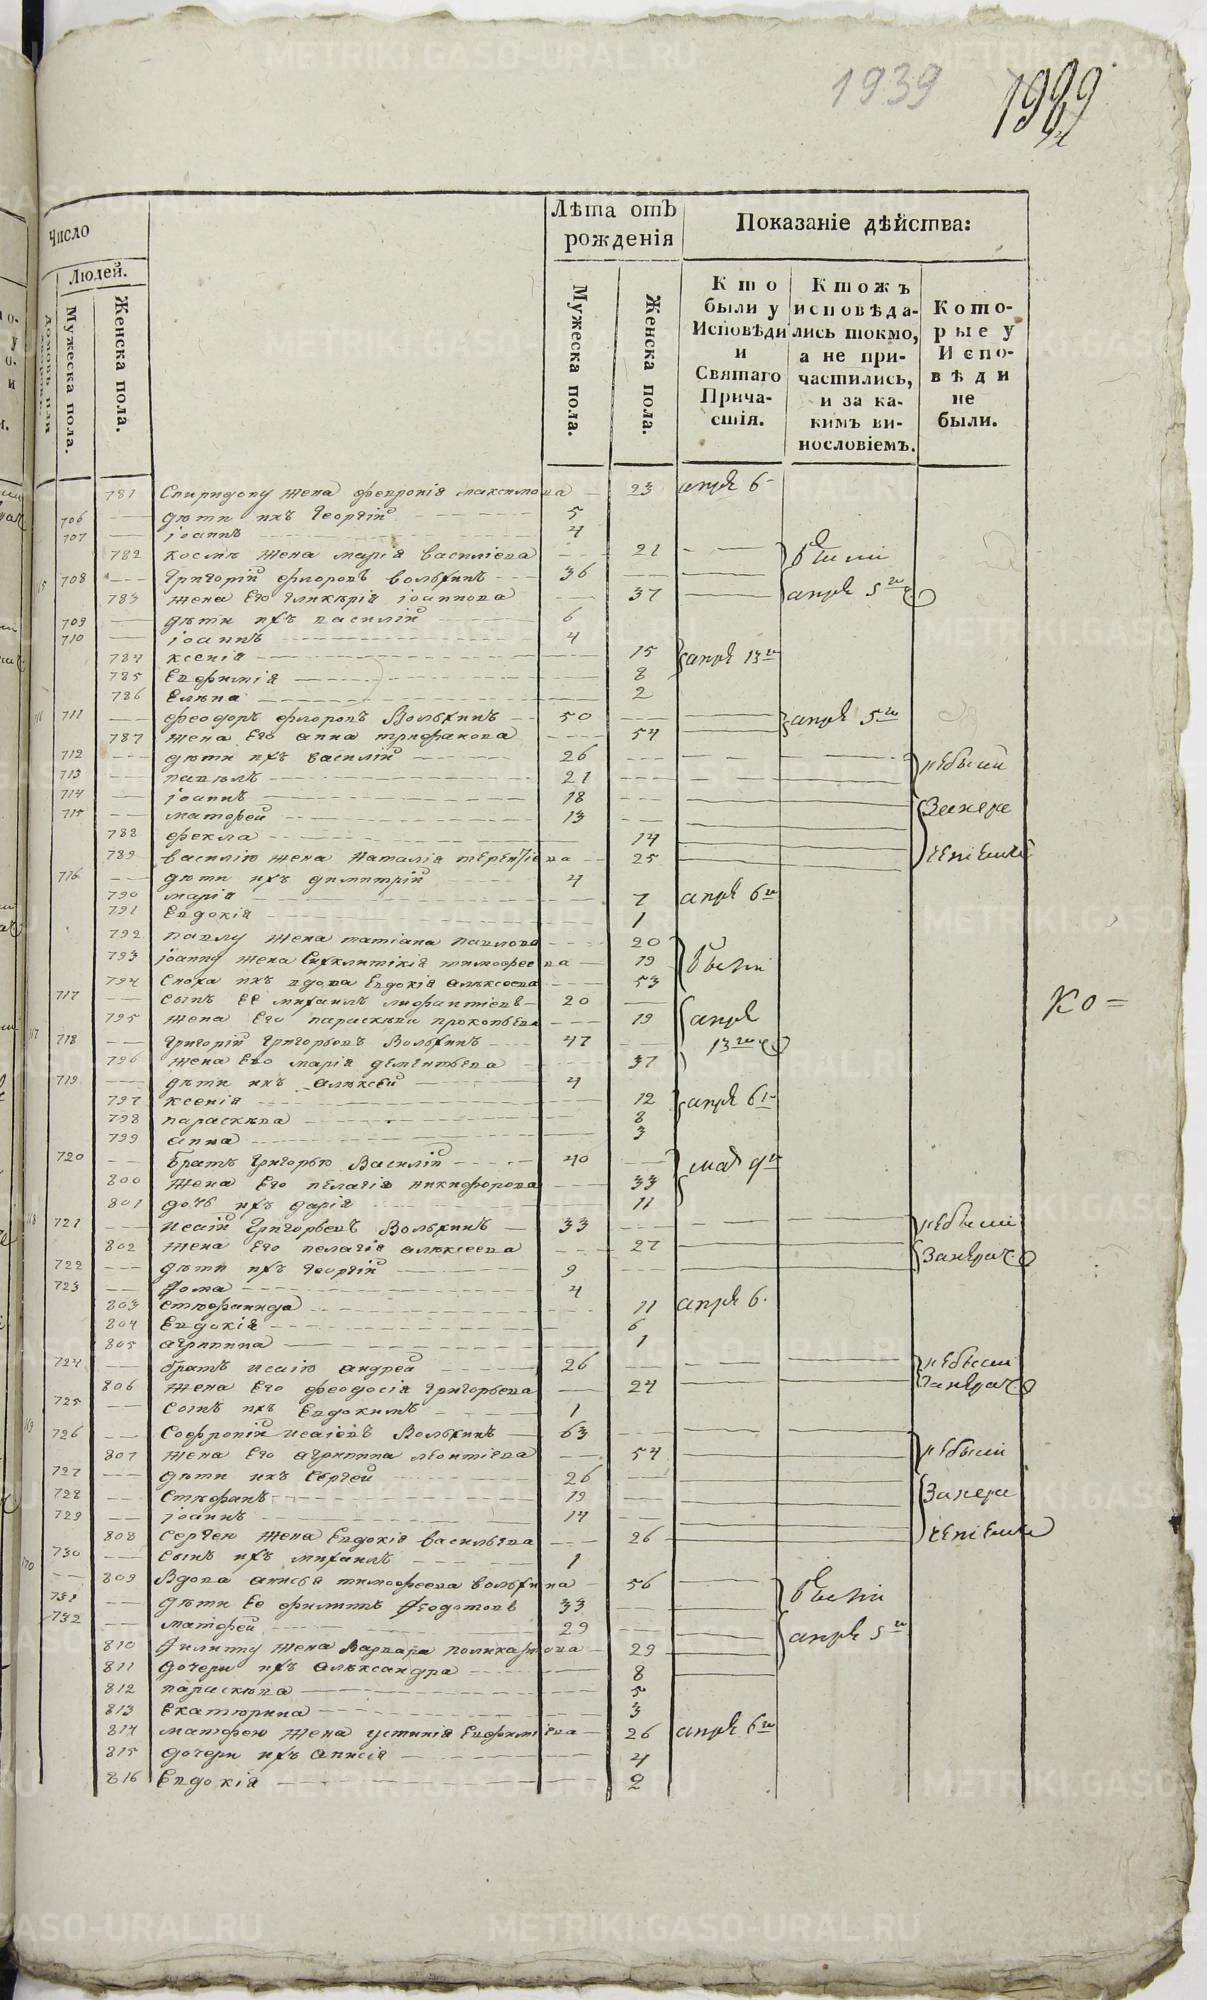 1939
1939
Число
Людей.
Мужеска пола.
Женска пола.
Лѣта отъ рожденія
Мужеска пола.
Женска пола.
Показаніе дѣйства:
Кто были у Исповѣди и Святаго Причастія.
Ктожъ исповѣдались токмо, а не причастились, и за какимъ винословіемъ.
Которые у Исповѣди не были.
781 Спиридону жена Февронія Максимова 23 апрѣ 6
706 дѣти ихъ Георгій 5
707 Іоаннъ 4
782 Космѣ жена Марія Василіева 21 были
165 708 Григорій Флоровъ Волхинъ 36
783 жена Его Гликерія Іоаннова 37 апрѣ 5го
709 дѣти ихъ Василій 6
710 Іоаннъ 4
784 Ксенія 15 апрѣ 13го
785 Евфимія 8
786 Елена 2
711 Феодоръ Флоровъ Волхинъ 50 апрѣ 5го
787 жена Его Анна Трифанова 54
712 дѣти ихъ Василій 26 небыли
713 Павелъ 21
714 Іоаннъ 18 Занера
715 Матфей 13
788 Фекла 14
789 Василію жена Наталія Терентіева 25 ченіемъ
716 дѣти ихъ Димитрій 4
790 Марія 7 апрѣ 6го
791 Евдокія 1
792 Павлу жена Татіана Павлова 20
793 Іоанну жена Сигклитікія Тимофеева 19 были
794 Сноха ихъ вдова Евдокія Алексеева 53
717 Сынъ Ее Михаилъ 20
795 жена Его Параскева Прокопьева 19 апрѣ
167 718 Григорій Григорьевъ Волхинъ 47 13го
796 жена Его Марія Дементьева 37
719 дѣти ихъ Алексей 4
797 Ксенія 12 апрѣ 6
798 Параскева 8
799 Анна 3
720 братъ Григорью Василій 40 мая 9го
800 жена Его Пелагія Никифорова 33
801 дочь ихъ Дарія 11
168 721 Исаій Григорьевъ Волхинъ 33 небыли
802 жена Его Пелагія Алексеева 27 Занерач
722 дѣти ихъ Георгій 9
723 Фома 4
803 Стефанида 11 апрѣ 6
804 Евдокія 6
805 Агрипина 1
724 братъ Исаію Андрей 26 небыли
806 жена Его Феодосія Григорьева 24 Занерач
725 сынъ ихъ Евдокимъ 1
169 726 Софроній Исаіевъ Волхинъ 63
807 жена Его Агрипина Леонтіева 54 небыли
727 дѣти ихъ Сергей 26
728 Стефанъ 19 Занера
729 Іоаннъ 14
808 Сергею жена Евдокія Васильева 26 ченіемъ
170 730 сынъ ихъ Михаилъ 1
809 Вдова Анисья Тимофеева Волхина 56 были
731 дѣти Ее Филиппъ Феодотовъ 33
732 Матфей 29 апрѣ 5го
810 Филиппу жена Варвара Поликарпова 29
811 дочери ихъ Александра 8
812 Параскева 5
813 Екатерина 3
814 Матфею жена Устинія Евфиміева 26 апрѣ 6го
815 дочери ихъ Анисія 4
816 Евдокія 2
Ко=